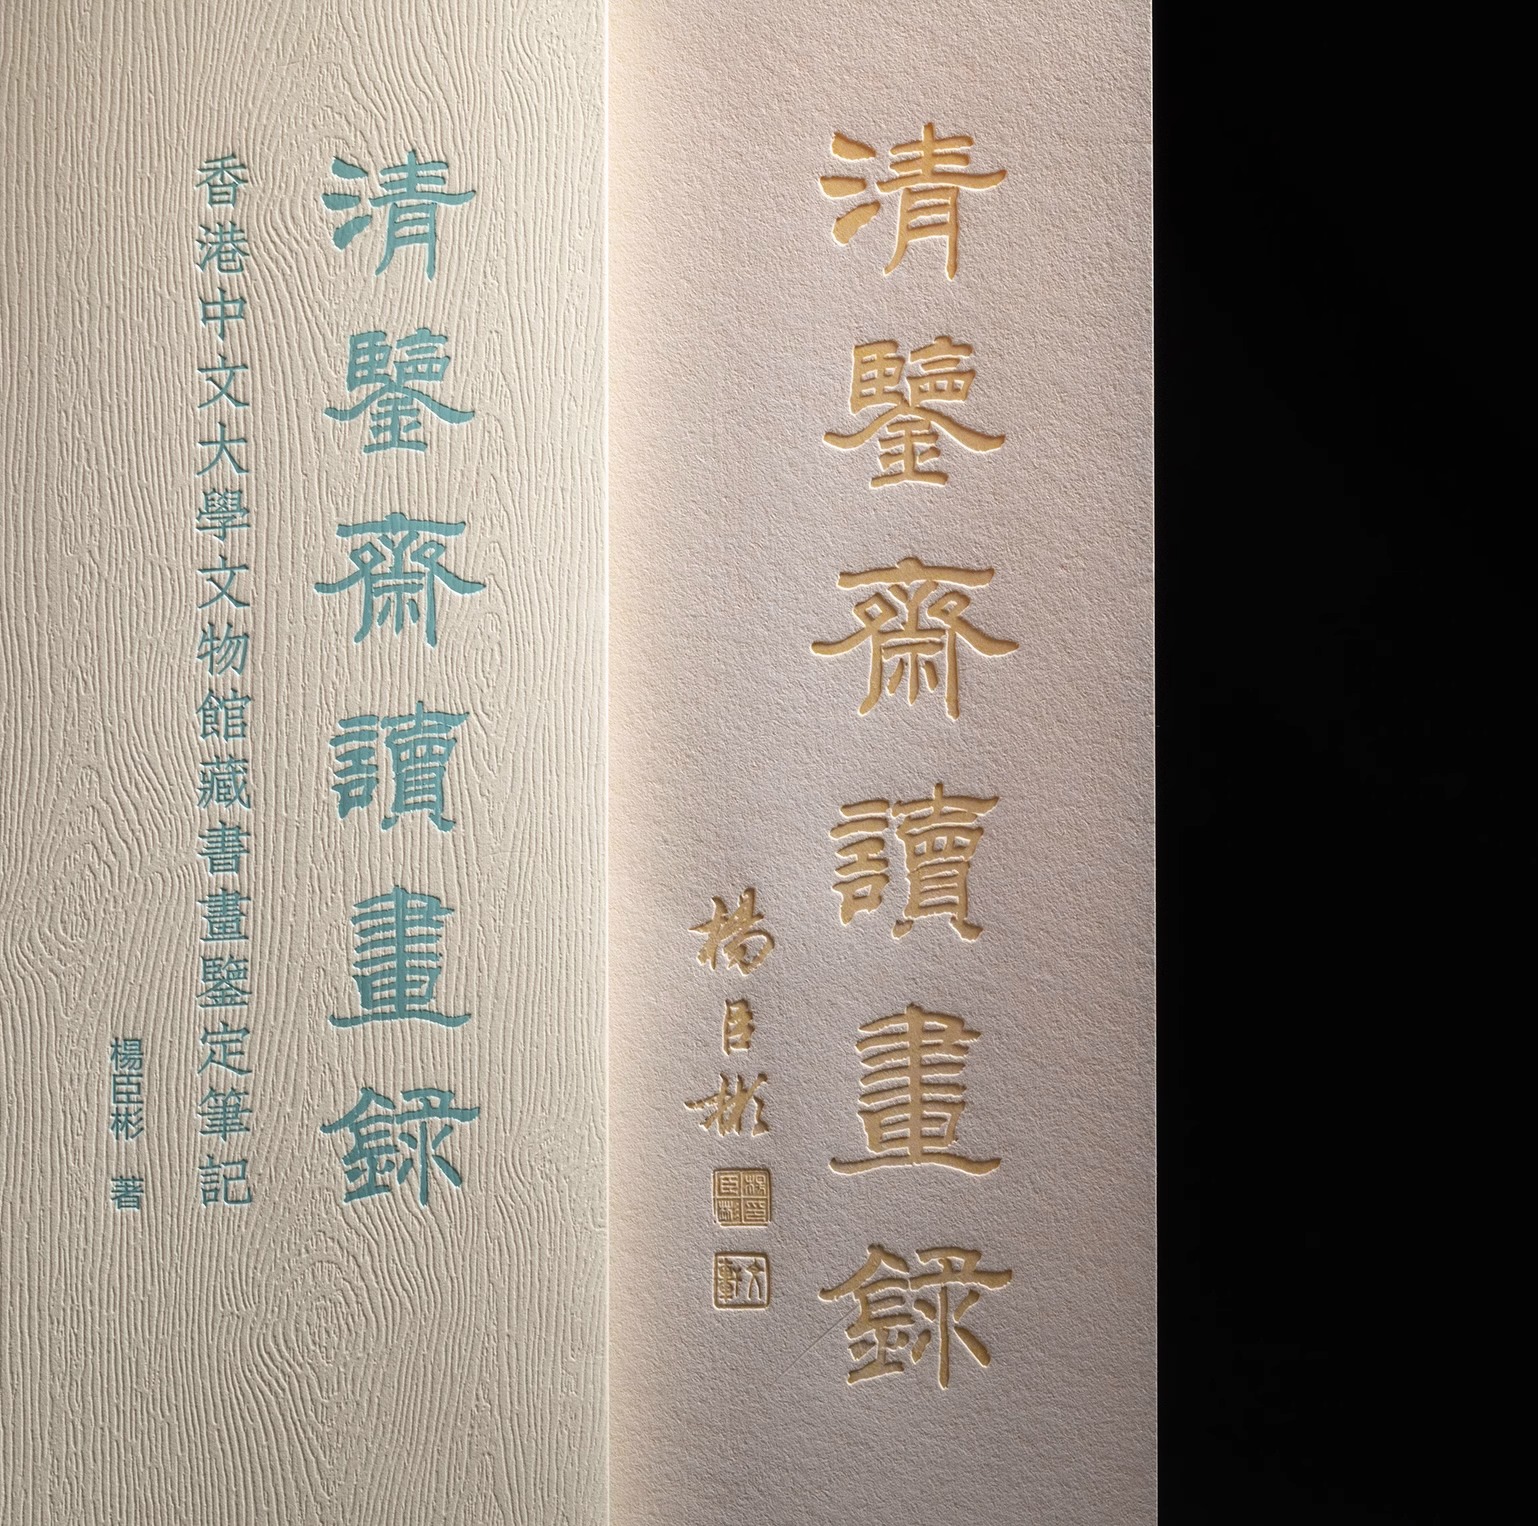 清鑒齋讀畫録
楊臣彬
清鑒齋讀畫録
香港中文大學文物館藏書畫鑒定筆記
楊臣彬 著